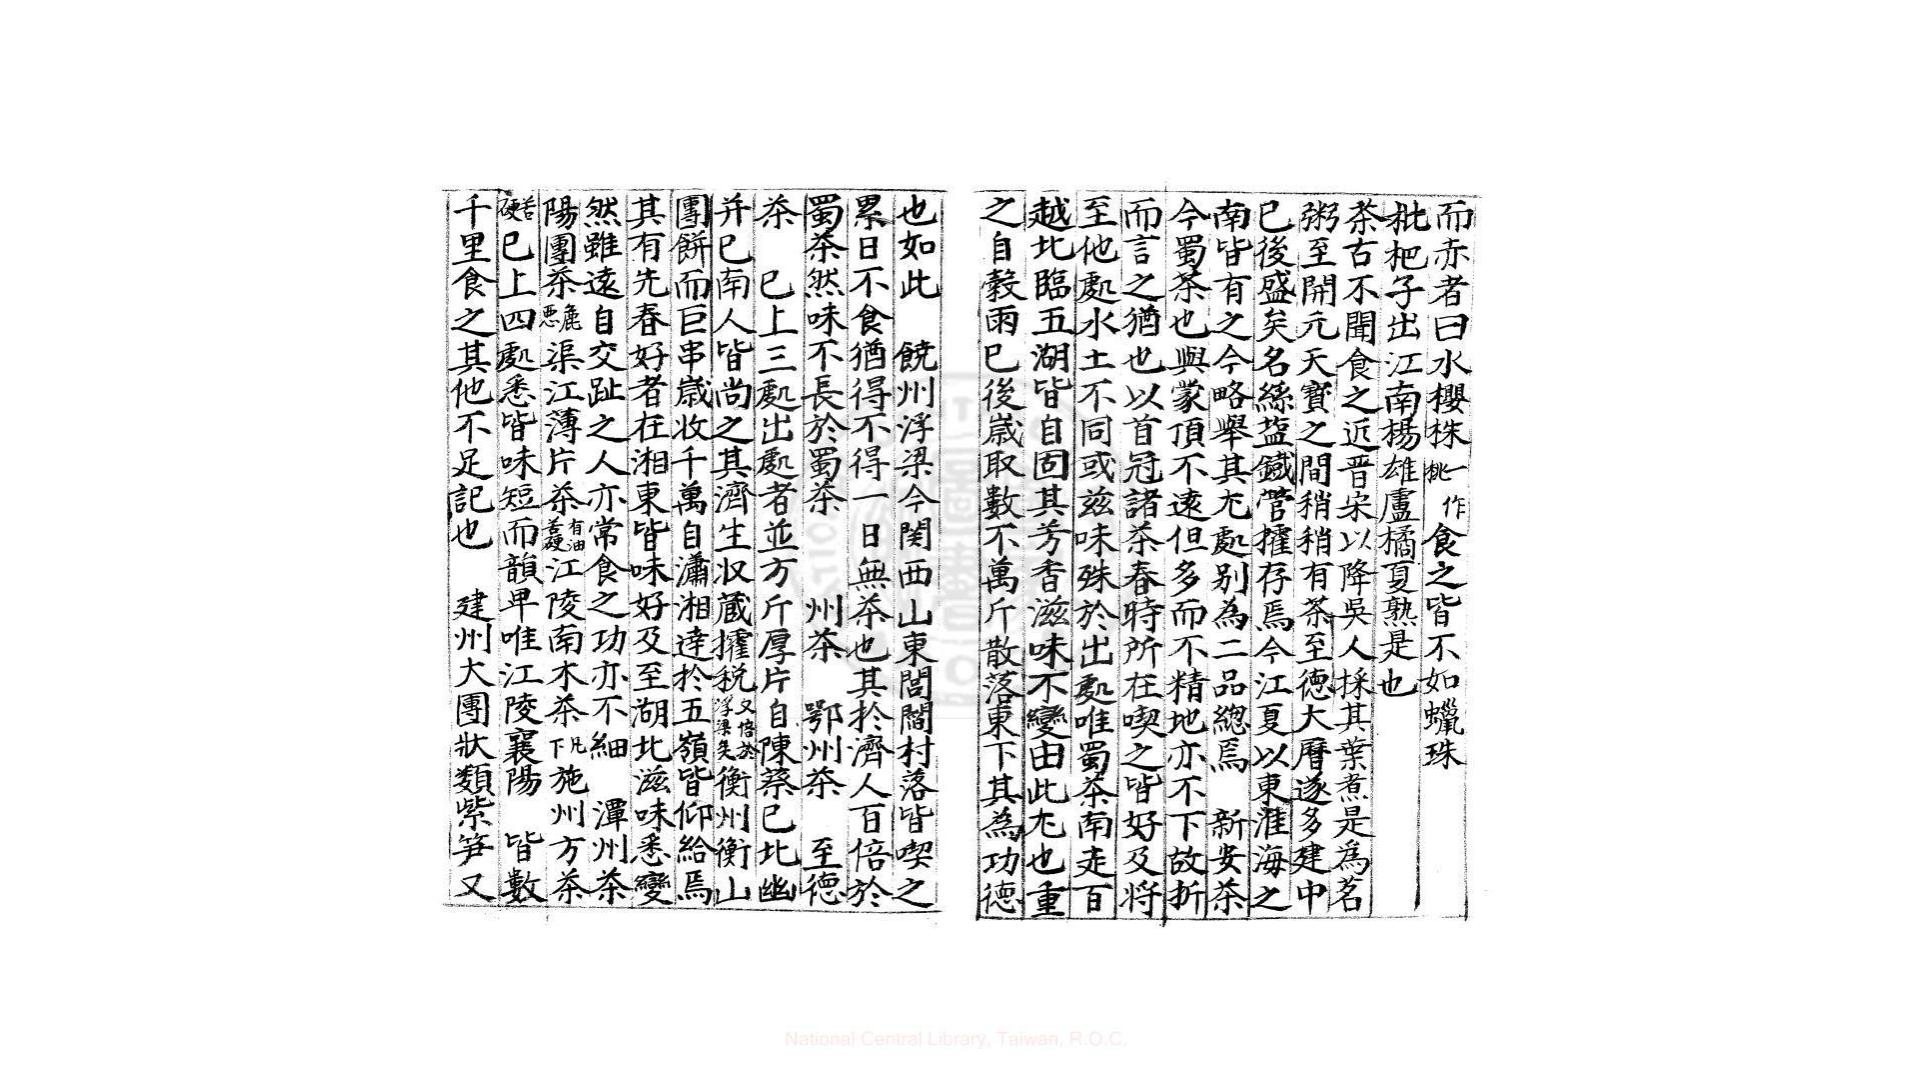 而赤者曰水櫻株一作桃食之皆不如蠟珠
枇杷子出江南楊雄盧橘夏熟是也
茶古不聞食之近晋宋以降吳人採其葉煮是為茗
粥至開元天寶之間稍稍有茶至德大曆遂多建中
已後盛矣名絲塩鐵管擢存焉今江夏以東淮海之
南皆有之今略舉其尤處别為二品總焉　新安茶
今蜀茶也與蒙頂不遠但多而不精地亦不下故折
而言之猶也以首冠諸茶春時所在喫之皆好及将
至他處水土不同或兹味殊於出處唯蜀茶南走百
越北臨五湖皆自固其芳香滋味不變由此尤也重
之自穀雨已後嵗取數不萬斤散落東下其為功德
也如此　饒州浮梁今関西山東閭閻村落皆喫之
累日不食猶得不得一日無茶也其扵濟人百倍於
蜀茶然味不長於蜀茶　州茶　鄂州茶　至德
茶　已上三處出處者並方斤厚片自陳蔡已北幽
并已南人皆尚之其濟生収蔵擢税又倍於浮梁矣衡州衡山
團餅而巨串嵗收千萬自瀟湘達於五嶺皆仰給焉
其有先春好者在湘東皆味好及至湖北滋味悉變
然雖遠自交趾之人亦常食之功亦不細　潭州茶
陽團茶麁惡渠江薄片茶有油苦硬江陵南木茶凡下施州方茶
苦硬已上四處悉皆味短而韻早唯江陵襄陽　皆數
千里食之其他不足記也　建州大團狀類紫笋又
National Central Library, Taiwan, R.O.C.